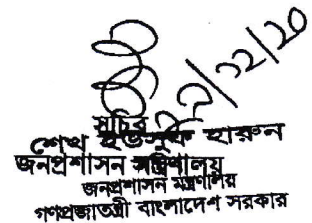 ২/১২/২০
সচিব
শেখ ইউসুফ হারুন
জনপ্রশাসন মন্ত্রণালয়
জনপ্রশাসন মন্ত্রণালয়
গণপ্রজাতন্ত্রী বাংলাদেশ সরকার